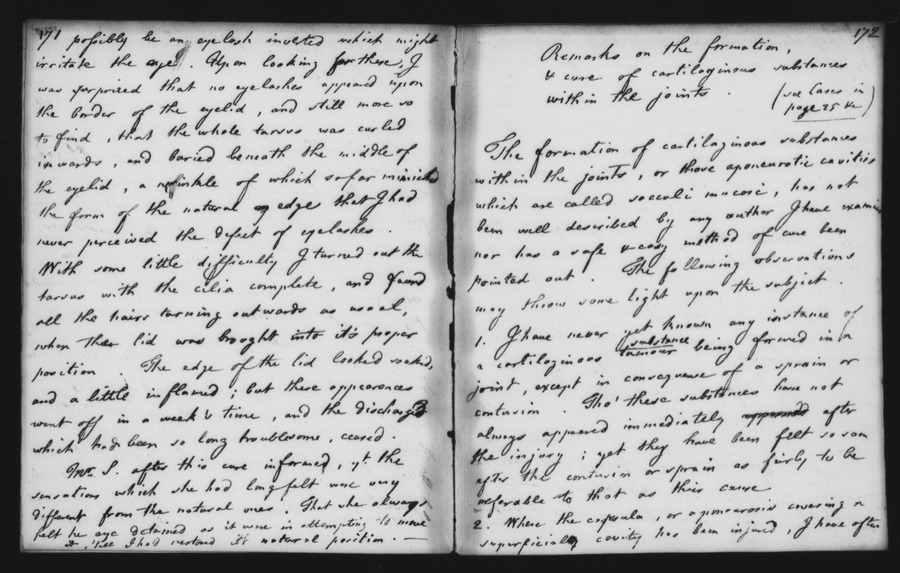 171 possibly be an eyelash inverted which might
irritate the eye. Upon looking for these, I
was surprized that no eyelashes appeared upon
the border of the eyelid, and still more so
to find, that the whole tarsus was curled
inwards, and buried beneath the middle of
the eyelid, a wrinkle of which so far mimicked
the form of the natural edge that I had
never perceived the defect of eyelashes.
With some little difficulty I turned out the
tarsus with the cilia complete, and found
all the hairs turning outwards as usual,
when the lid was brought into it's proper
position. The edge of the lid looked soaked,
and a little inflamed; but these appearances
went off in a week's time, and the discharge
which had been so long troublesome, ceased.
Mrs. S. after this cure informed, yt. the
sensations which she had long felt were very
different from the natural ones. That she always
felt her eye detained as it were in attempting to move
it, 'till I had restored it's natural position. —
172
Remarks on the formation,
& cure of cartilaginous substances
within the joints. (see Cases in
page 25 &c)
The formation of cartilaginous substances
within the joints, or those aponeurotic cavities
which are called sacculi mucosi, has not
been well described by any author I have examined
nor has a safe & easy method of cure been
pointed out. The following observations
may throw some light upon the subject.
1. I have never yet known any instance of
a cartilaginous tumour substance being formed in a
joint, except in consequence of a sprain or
contusion. Tho' these substances have not
always appeared immediately appeared after
the injury; yet they have been felt so soon
after the contusion or sprain as fairly to be
referable to that as their cause
2. Where the capsula, or aponeurosis covering a
superficial cavity has been injured, I have often